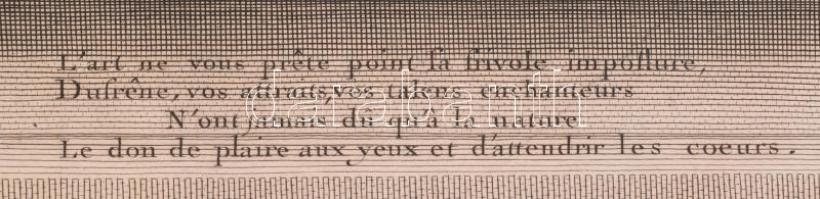 L'art ne vous prête point sa frivole imposture,
Dufrêne, vos attraits, vos talens enchanteurs
N'ont jamais dû qu'à la nature
Le don de plaire aux yeux et d'attendrir les coeurs.
darabanth